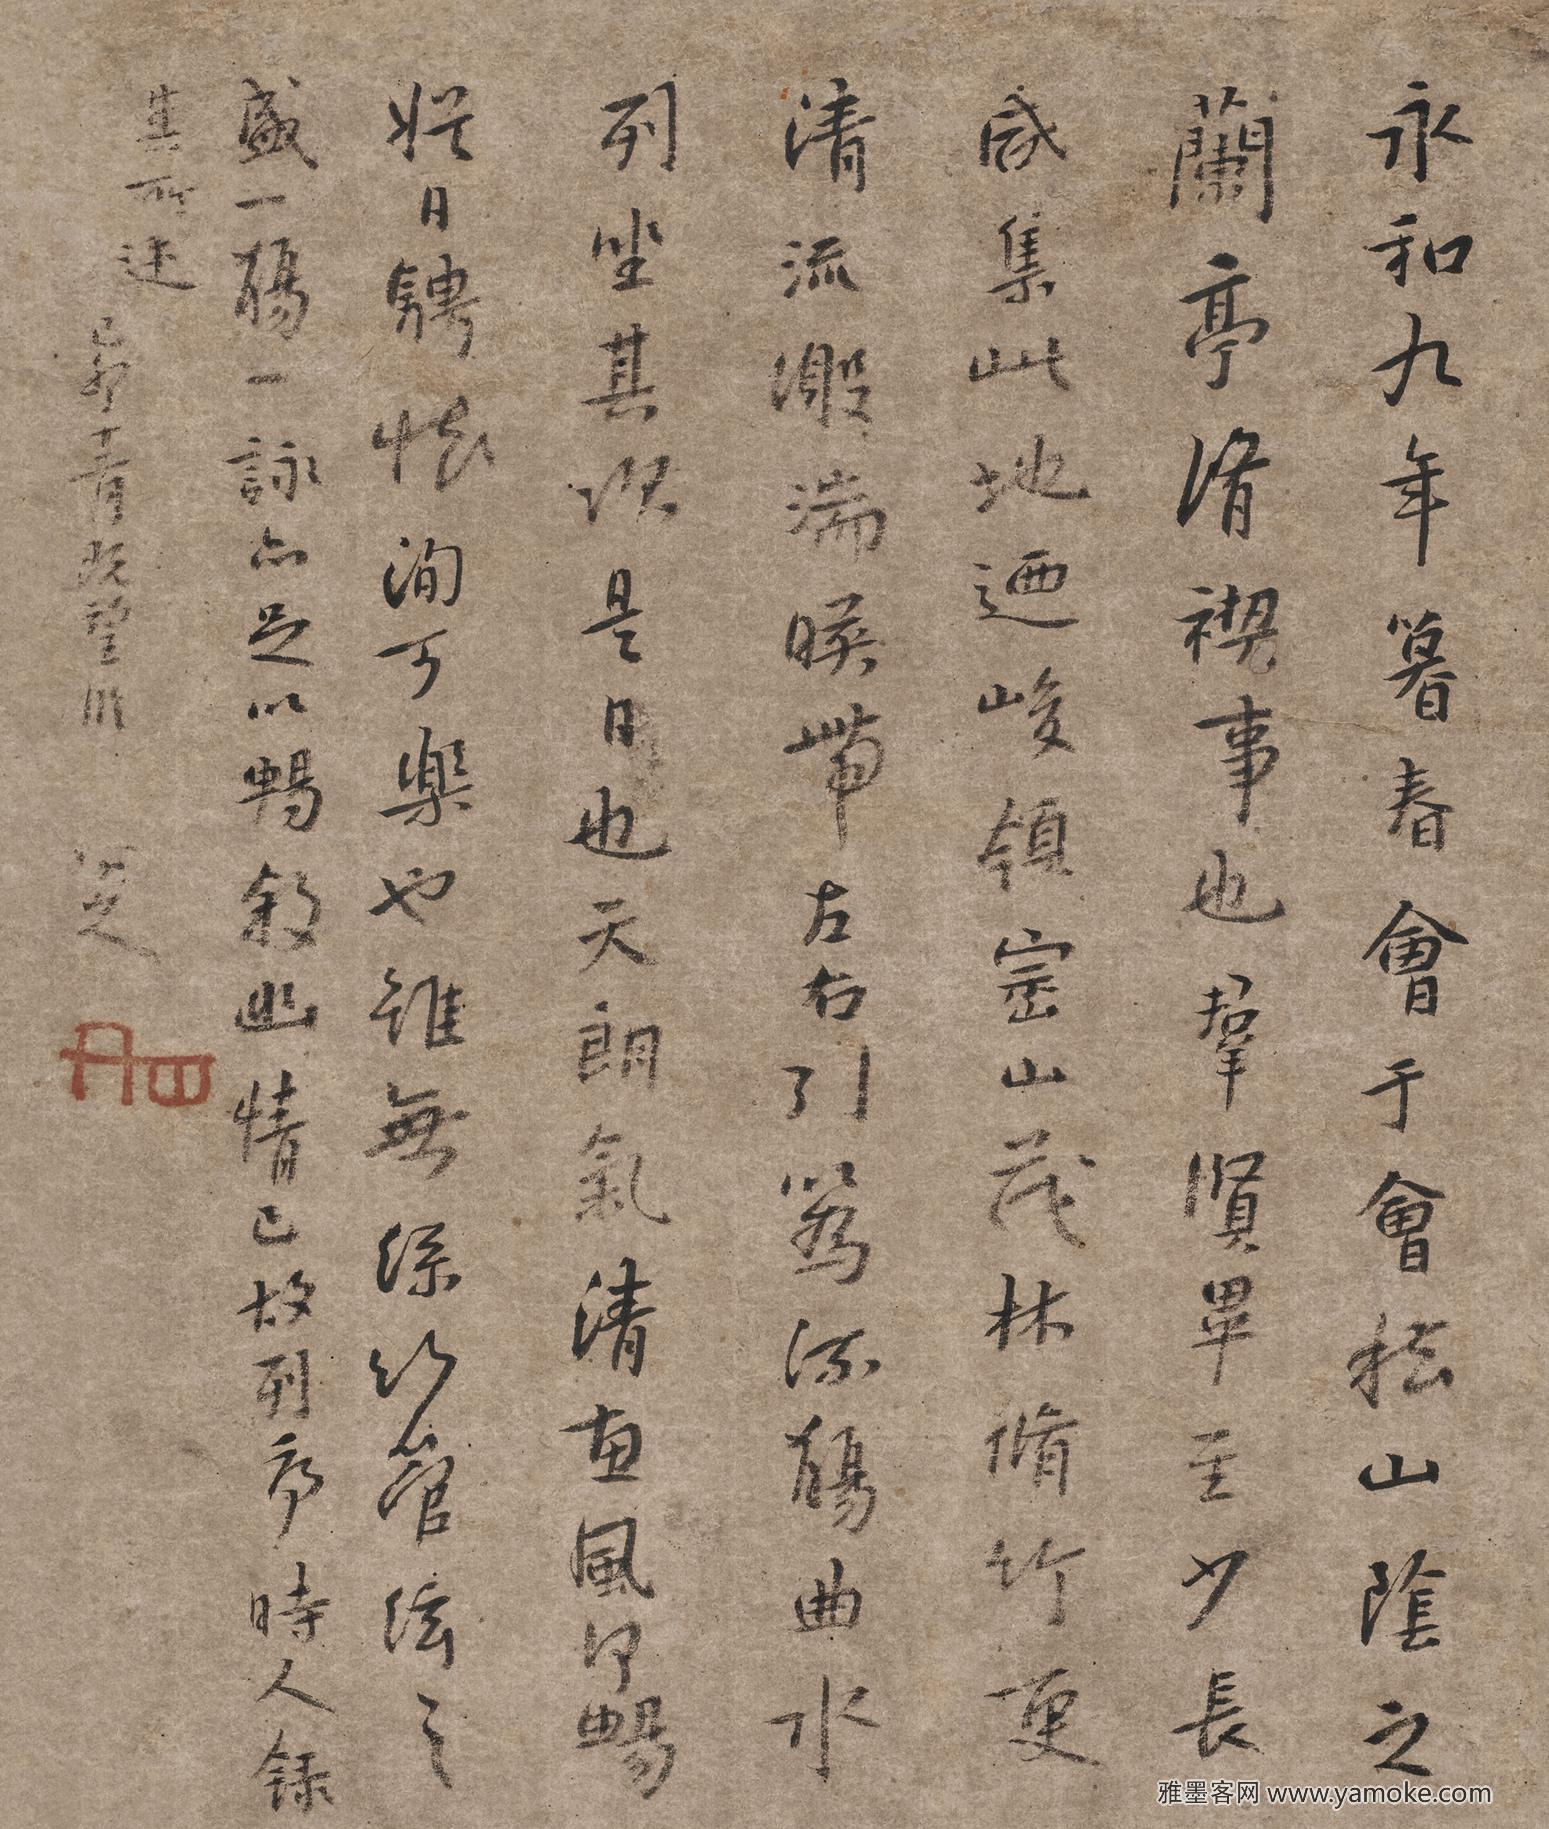 永和九年暮春會于會稽山陰之
蘭亭脩禊事也羣賢畢至少長
咸集此地迺峻領崇山茂林脩竹更
清流激湍暎帶左右引以爲流觴曲水
列坐其次是日也天朗氣清惠風和暢
娛日騁懷洵可樂也雖無絲竹管絃之
盛一觴一詠亦足以暢敘幽情已故列序時人錄
其所述
己卯既望
雅墨客网 www.yamoke.com